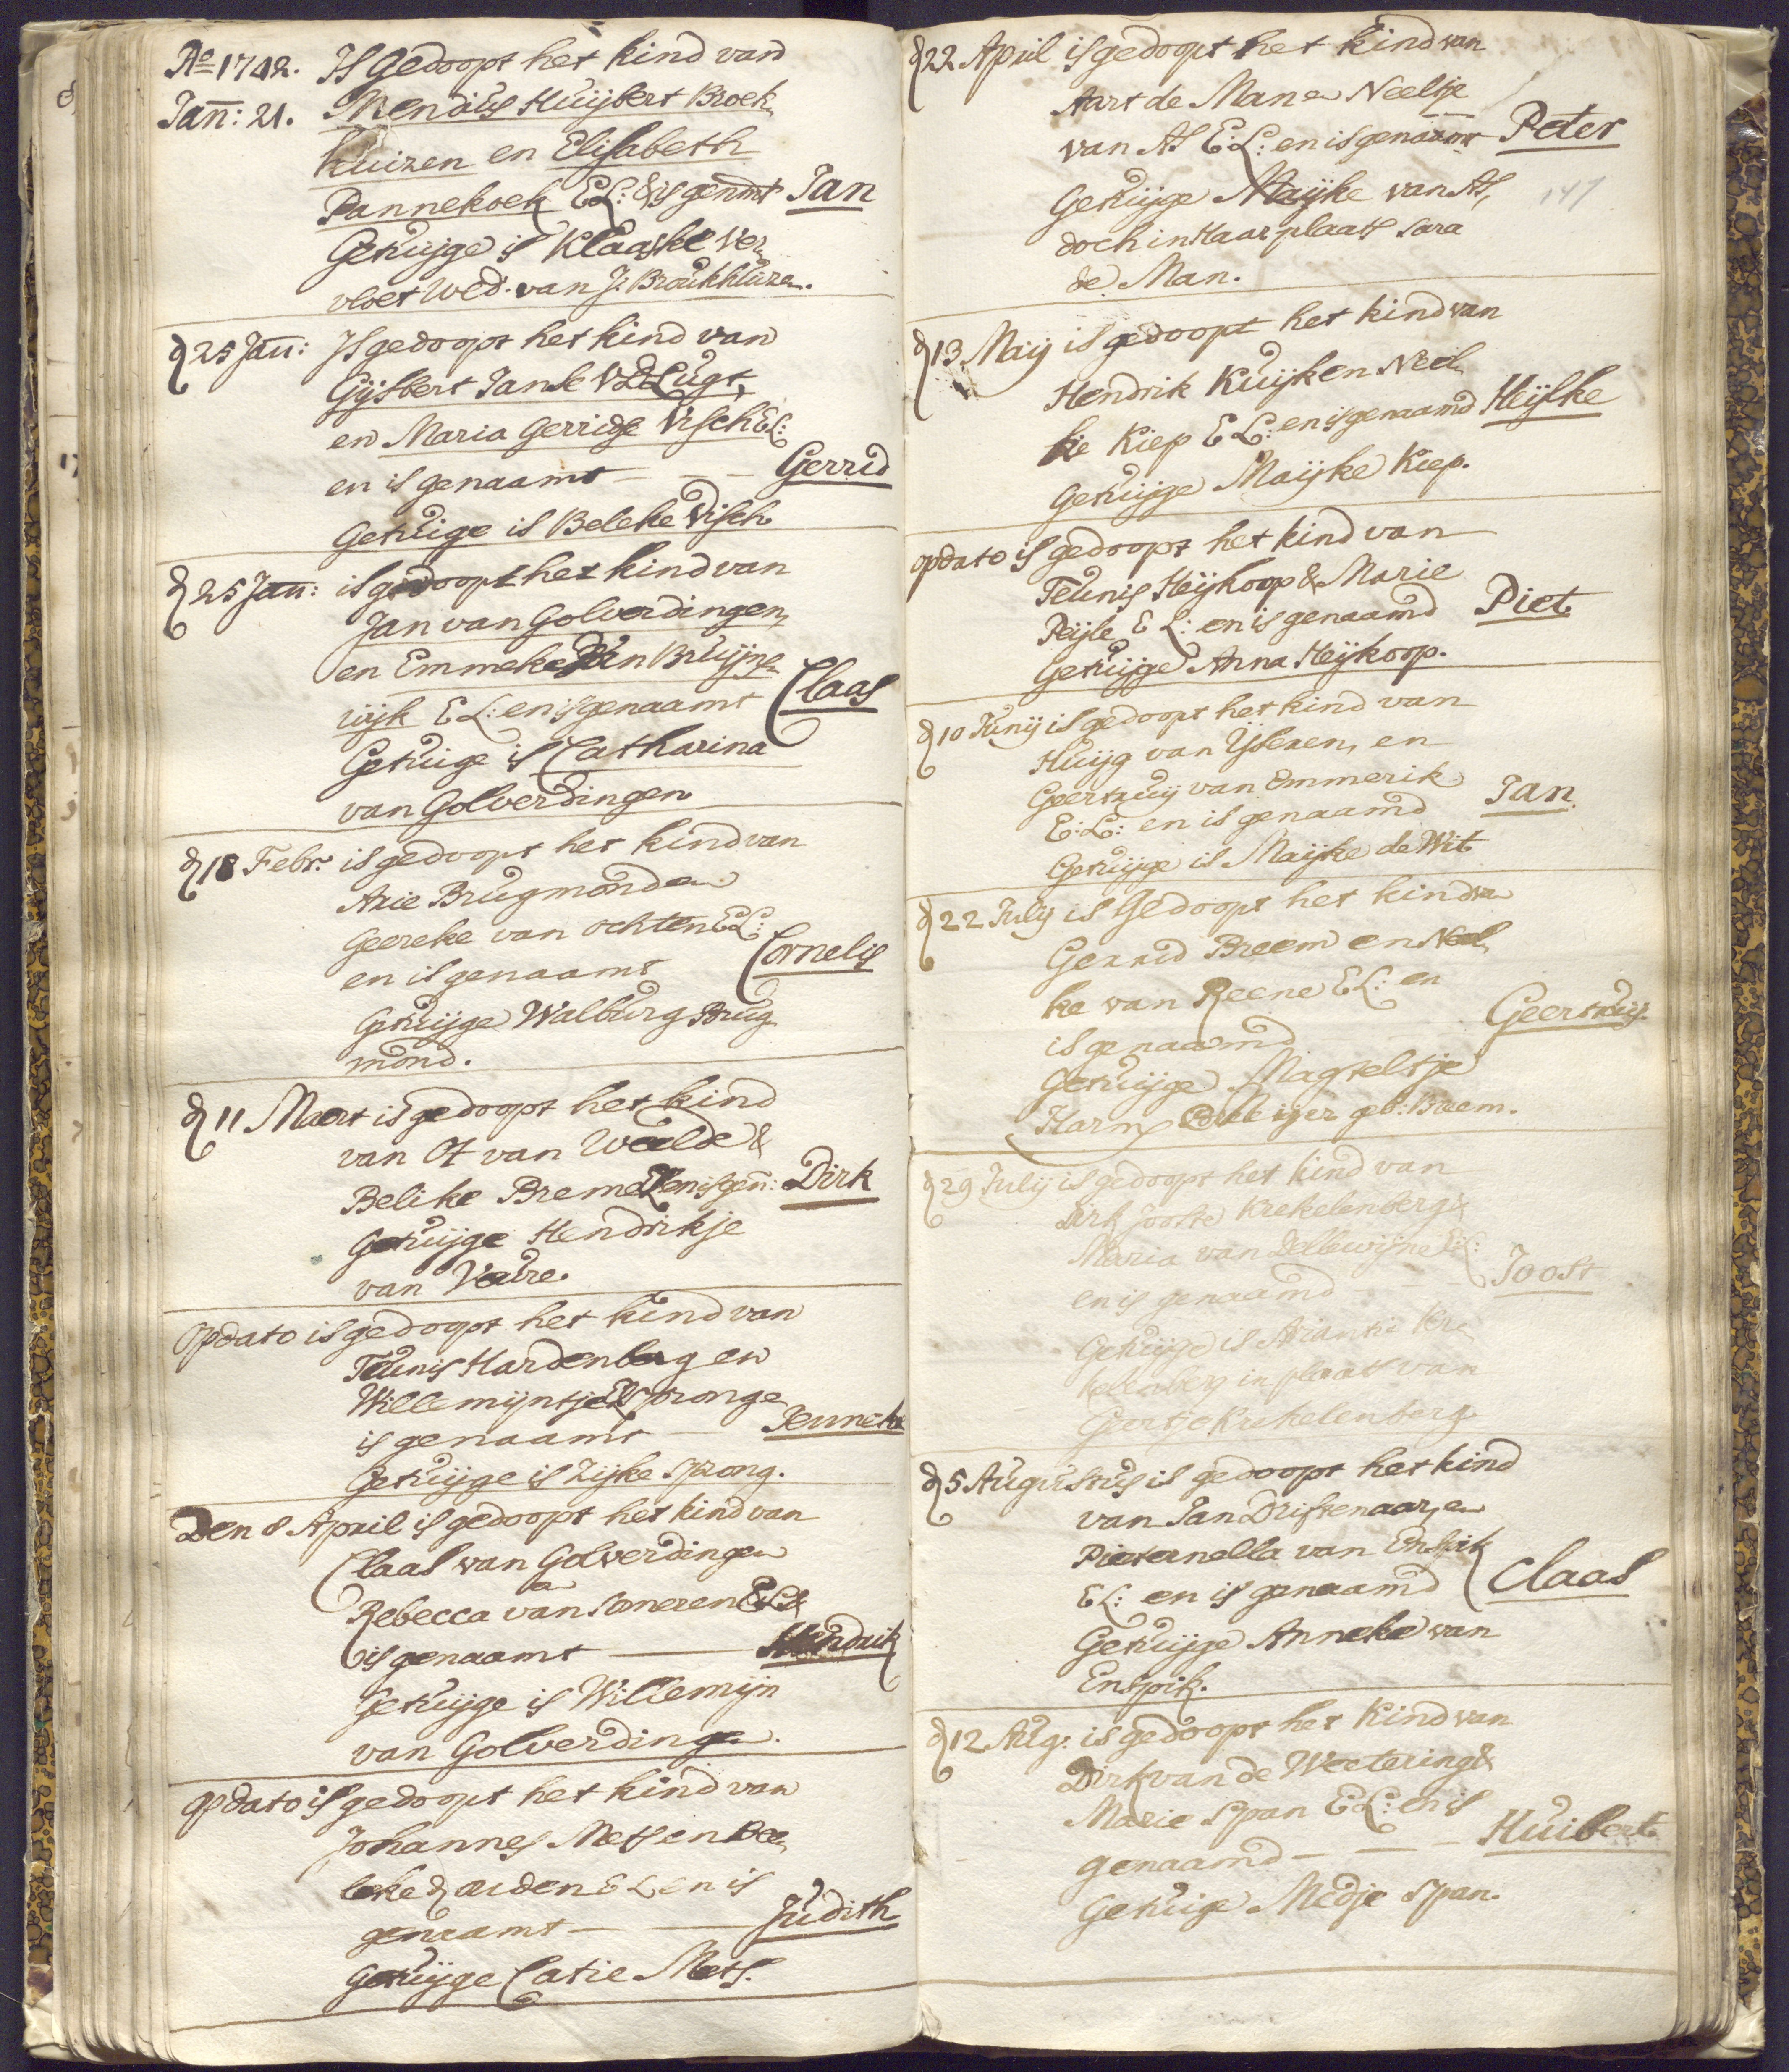 Ao 1742. Is Gedoopt het kind van
Jan̄: 21. Mendus Huijbert Broek„
huizen en Elisabeth
Pannekoek EL: & is genmt Jan
Getuijge is Klaaske Ver„
vloet Wed. van J: Broukhuizen.
d 25 Jan̄: Is gedoopt het kind van
Gijsbert Janse VD Lugt,
en Maria Gerridse Visch EL:
en is genaamt — — — Gerrid
Getuige is Beleke Visch
d 25 Jan̄: is gedoopt het kind van
Jan van Golverdingen,
en Emmeke Van Bruijns„
wijk EL: en is genaamt Claas
Getuige is Catharina
van Golverdingen
d 18 Febr. is gedoopt het kind van
Arie Brugmond en
Geereke van Ochten EL:
en is genaamt Cornelis
Getuijge Walburg Brug
mond.
d 11 Maert is gedoopt het kind
van Ot van Weelde &
Belike Breme EL en is gen̄: Dirk
Getuijge Hendrikje
van Veure.
op dato is gedoopt het kind van
Teunis Hardenberg en
Willemijntje EL Spronge
is genaamt — Jenneke
Getuijge is Zijke Sprong.
Den 8 April is gedoopt het kind van
Claas van Golverdingen
en
Rebecca van Someren EL &
is genaamt — Hendrik
Getuijge is Willemijn
van Golverdingen.
op dato is gedoopt het kind van
Johannes Mets en Bee„
leke d aiden EL en is
genaamt — — Judith
Getuijge Catie Mets.
d 22 April is gedoopt het kind van
Aart de Man en Neeltje
van As E:L: en is genaamt Peter
Getuijge Maijke van As,
doch in Haar plaats Sara
de Man.
147
d 13 Maij is gedoopt het kind van
Hendrik Kuijk en Neel„
ke Kiep E L: en is genaamd Heijlke
Getuijge Maijke Kiep.
op dato is gedoopt het kind van
Teunis Heijkoop & Marie
Peijle E L: en is genaamd Piet.
Getuijge Anna Heijkoop.
d 10 Junij is gedoopt het kind van
Huijg van IJseren, en
Geertruij van Emmerik
E:L: en is genaamd Jan
Getuijge is Maijke de Wit
d 22 Julij is Gedoopt het kind van
Gerrid Breem en Neel„
ke van Reene EL: en
is genaamd Geertruij.
Getuijge Magteltje
Harm geb: Breem.
d 29 Julij is gedoopt het kind van
Dirk Jooste Krekelenberg &
Maria van Dellewijne EL:
en is genaamd — Joost
Getuijge is Ariantie Kre„
kelenberg in plaats van
Geertje Krekelenberg
d 5 Augustus is gedoopt het kind
van Jan Driftenaar, en
Pieternella van Enspik
EL: en is genaamd Claas
Getuijge Anneke van
Enspik.
d 12 Aug: is gedoopt het Kind van
Dirk van de Weetering &
Marie Span EL: en is
genaamd — — — Huibert
Getuige Medje Span.